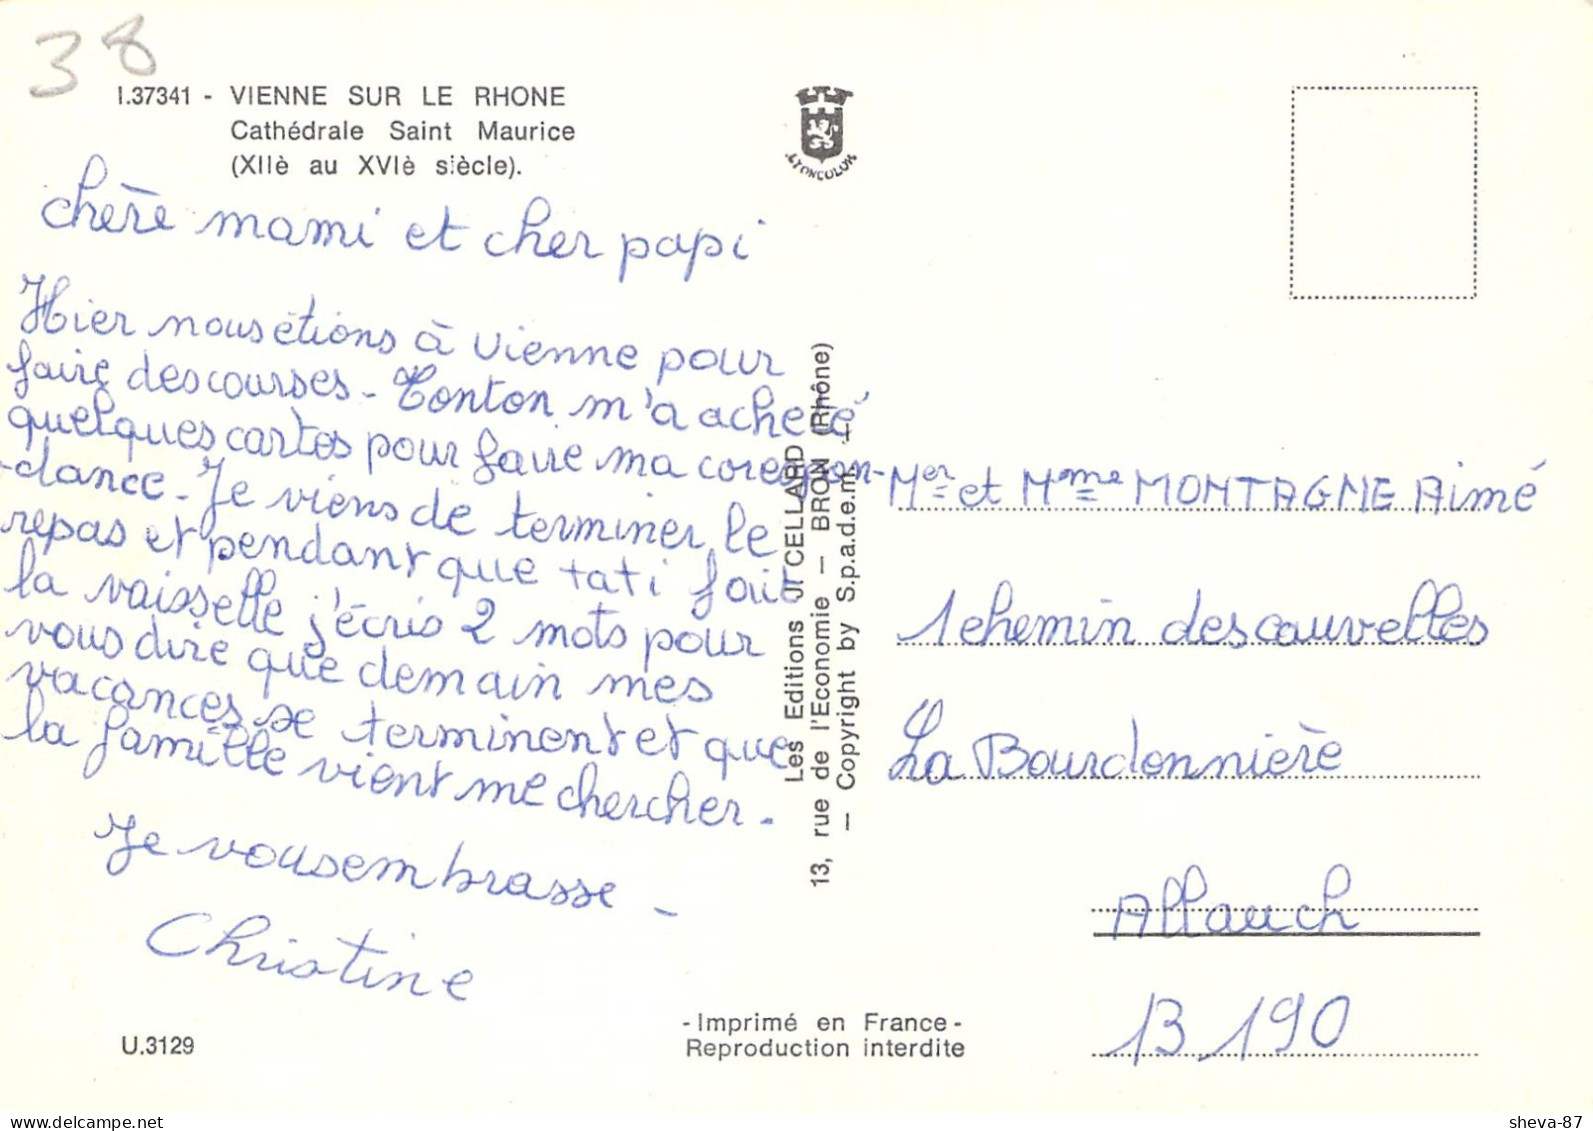 38
I.37341 - VIENNE SUR LE RHONE
Cathédrale Saint Maurice
(XIIè au XVIè siècle).
LYONCOLOR
chère mami et cher papi
Hier nous étions à vienne pour
faire des courses - Tonton m'a acheté
quelques cartes pour faire ma corespon-
-dance. Je viens de terminer le
repas et pendant que tati fait
la vaisselle j'écris 2 mots pour
vous dire que demain mes
vacances se terminent et que
la famille vient me chercher.
Je vous embrasse -
Christine
U.3129
Les Editions J. CELLARD
13, rue de l'Economie — BRON (Rhône)
— Copyright by S.p.a.d.e.m. —
Mer et Mme MONTAGNE Aimé
1 chemin des cauvelles
La Bourdonnière
Allauch
13 190
-Imprimé en France-
Reproduction interdite
sheva-87